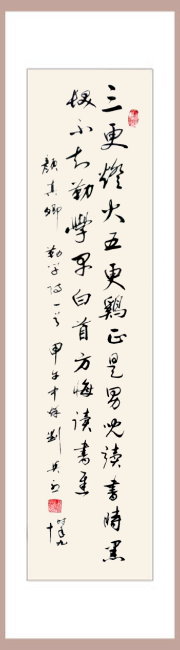 三更燈火五更鷄正是男兒讀書時黑
髮不知勤學早白首方悔讀書遲
顏真卿 勤学詩一首 甲午中秋 劉
時年九
十